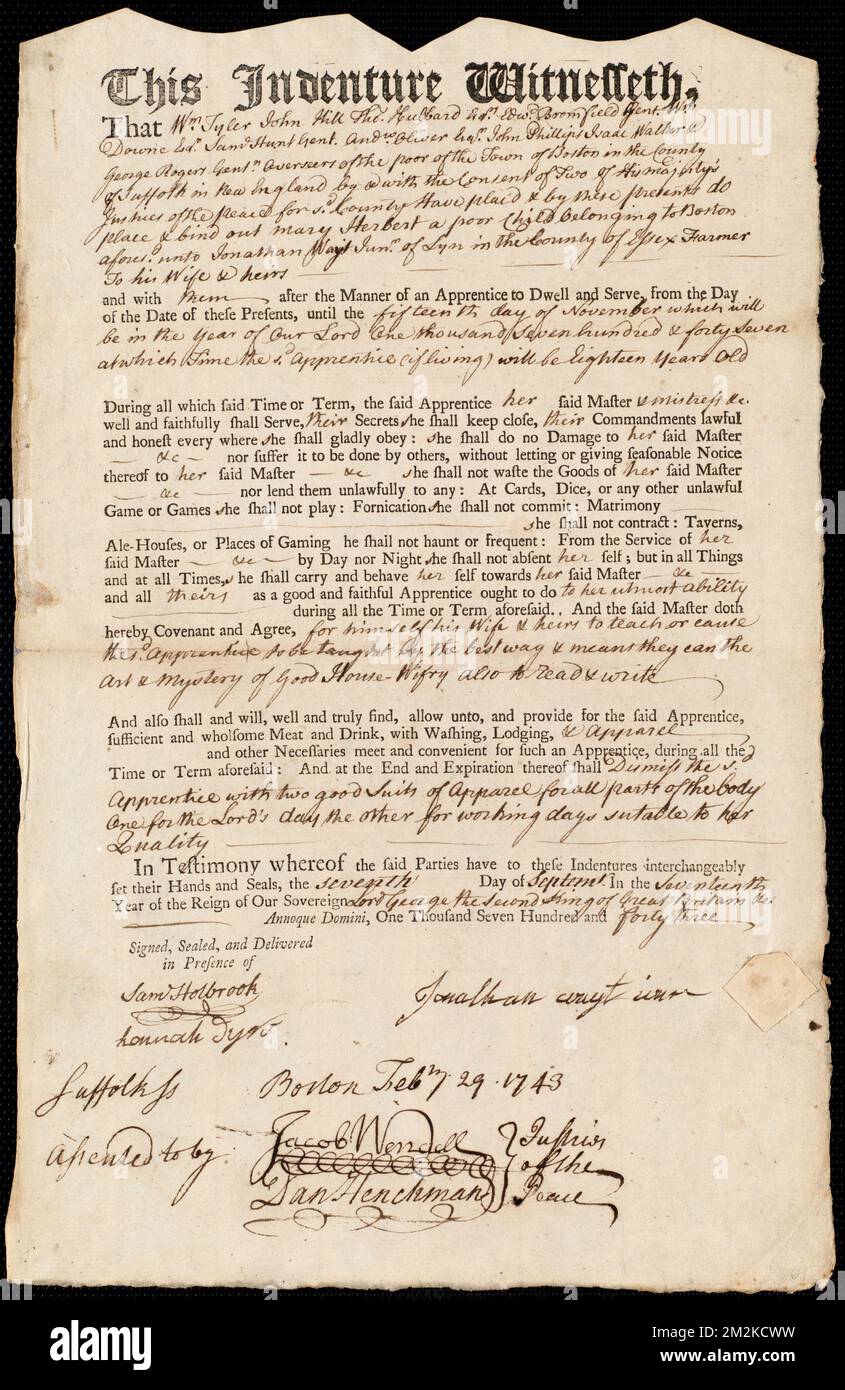 This Indenture Witnesseth,
That Wm. Tyler John Hill Tho. Hubbard Esqrs. Edwd. Bromfield Gent. Wm.
Downe Esqr. Saml. Hunt Gent. Andw. Oliver Esqr. John Phillips Isaac Walker &
George Rogers Gentn. Overseers of the poor of the Town of Boston in the County
of Suffolk in New England by & with the Consent of Two of His majesty's
Justices of the peace for sd. County Have placd & by these presents do
place & bind out mary Herbert a poor Child belonging to Boston
aforesd. unto Jonathan Wayt Junr. of Lyn in the County of Essex Farmer
To his Wife & heirs
and with them after the Manner of an Apprentice to Dwell and Serve, from the Day
of the Date of these Presents, until the fifteenth day of November which will
be in the Year of Our Lord One thousand seven hundred & forty seven
at which Time the sd. apprentice (if living) will be Eighteen Years Old
During all which said Time or Term, the said Apprentice her said Master & mistress &c.
well and faithfully shall Serve, their Secrets she shall keep close, their Commandments lawful
and honest every where she shall gladly obey: she shall do no Damage to her said Master
— &c — nor suffer it to be done by others, without letting or giving seasonable Notice
thereof to her said Master — &c she shall not waste the Goods of her said Master
— &c — nor lend them unlawfully to any: At Cards, Dice, or any other unlawful
Game or Games she shall not play: Fornication she shall not commit: Matrimony —
she shall not contract: Taverns,
Ale-Houses, or Places of Gaming he shall not haunt or frequent: From the Service of her
said Master — &c — by Day nor Night she shall not absent her self; but in all Things
and at all Times, she shall carry and behave her self towards her said Master — &c —
and all theirs as a good and faithful Apprentice ought to do to her utmost ability
during all the Time or Term aforesaid.. And the said Master doth
hereby Covenant and Agree, for himself his Wife & heirs to teach or cause
the sd. apprentice to be taught by the best way & means they can the
Art & mystery of Good House-Wifry also to read & write
And also shall and will, well and truly find, allow unto, and provide for the said Apprentice,
sufficient and wholsome Meat and Drink, with Washing, Lodging, & Apparel
and other Necessaries meet and convenient for such an Apprentice, during all the
Time or Term aforesaid: And at the End and Expiration thereof shall Dismiss the sd.
Apprentice with two good Suits of Apparel for all parts of the body
One for the Lord's day the other for working days suitable to her
Quality
In Testimony whereof the said Parties have to these Indentures interchangeably
set their Hands and Seals, the seventh Day of Septemr. In the Seventeenth
Year of the Reign of Our Sovereign Lord George the Second King of Great Britain &c.
Annoque Domini, One Thousand Seven Hundred and forty three
Signed, Sealed, and Delivered
in Presence of
Saml. Holbrook
Jonathan wayt iunr
hannah Dyer
Suffolk ss
Boston Febry. 29. 1743
Assented to by
Jacob Wendell
Dan Henchman
Justices
of the
Peace
alamy
Image ID: 2M2KCWW
www.alamy.com